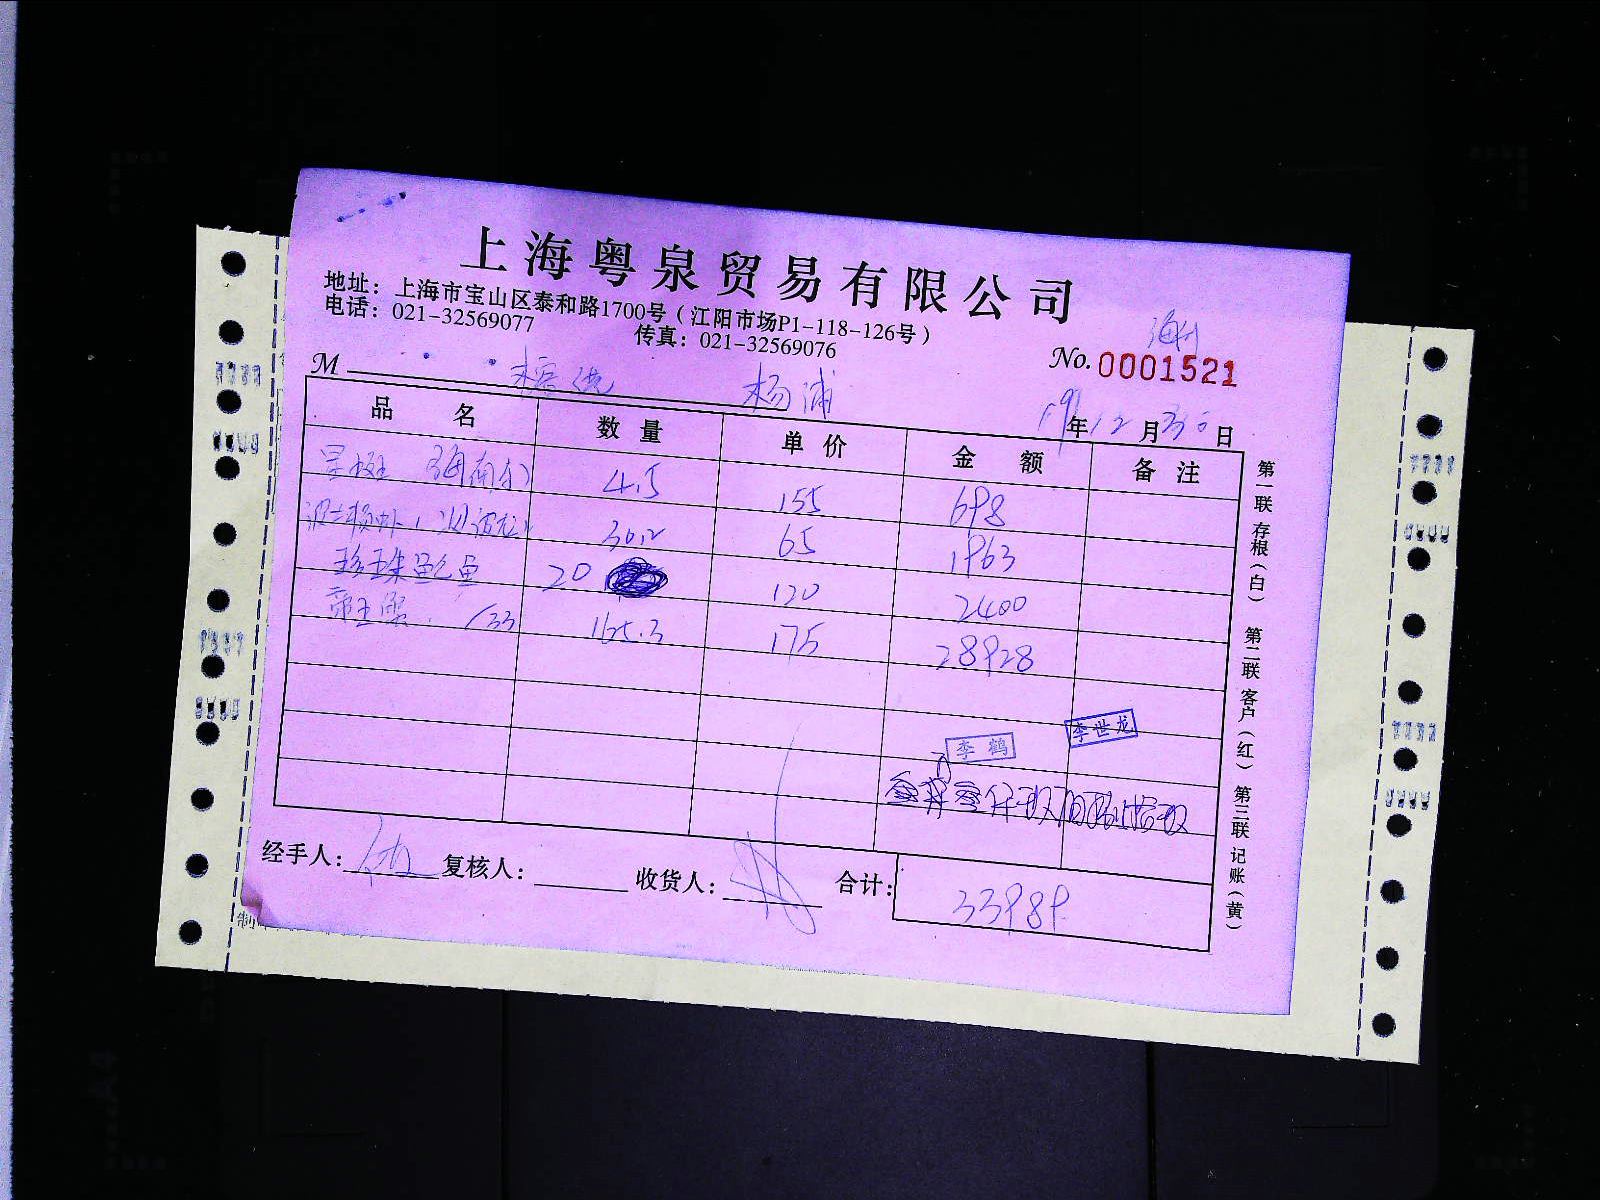 上海粤泉贸易有限公司
地址：上海市宝山区泰和路1700号（江阳市场P1-118-126号）
电话：021-32569077 传真：021-32569076
No. 0001521
M 杨浦
19年12月30日
品名 数量 单价 金额 备注
4.5 155 698
30.2 65 1963
珍珠鲍鱼 20 120 2400
帝王蟹 133 165.3 175 28928
李鹤 李世龙
经手人： 复核人： 收货人： 合计： 33989
第一联 存根（白） 第二联 客户（红） 第三联 记账（黄）